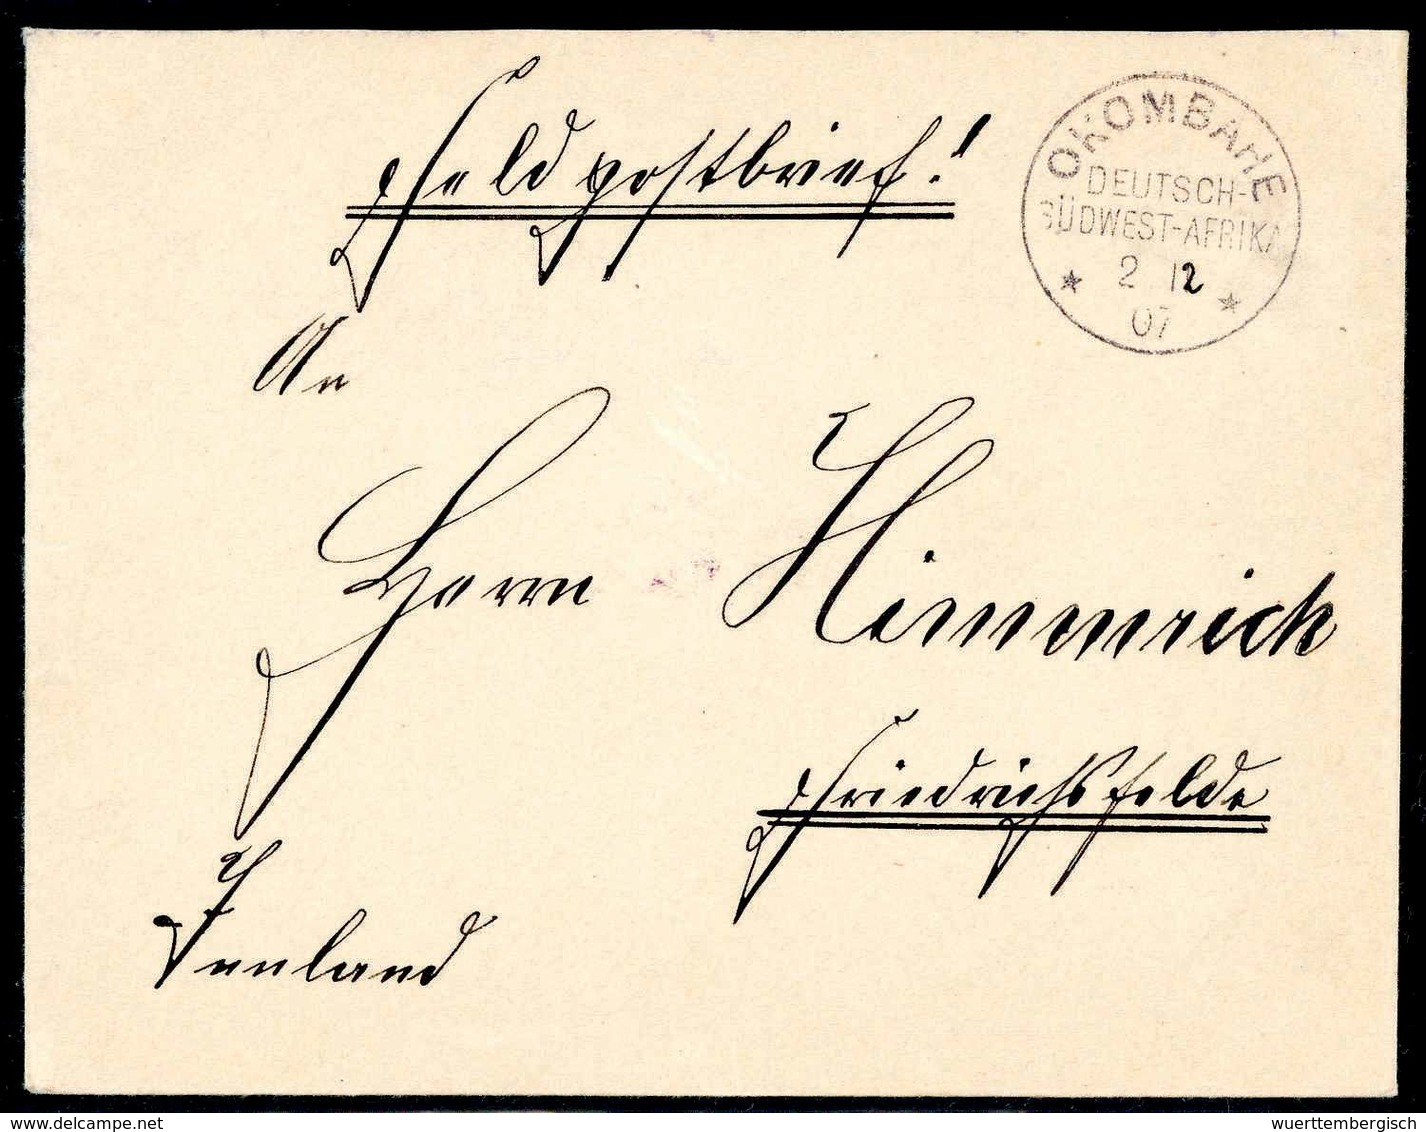 Feldpostbrief!
OKOMBAHE
DEUTSCH-
SÜDWEST-AFRIKA
2 12
07
An
Herrn Himmrich
Friedrichsfelde
Innland
delcampe.net
wuerttembergisch